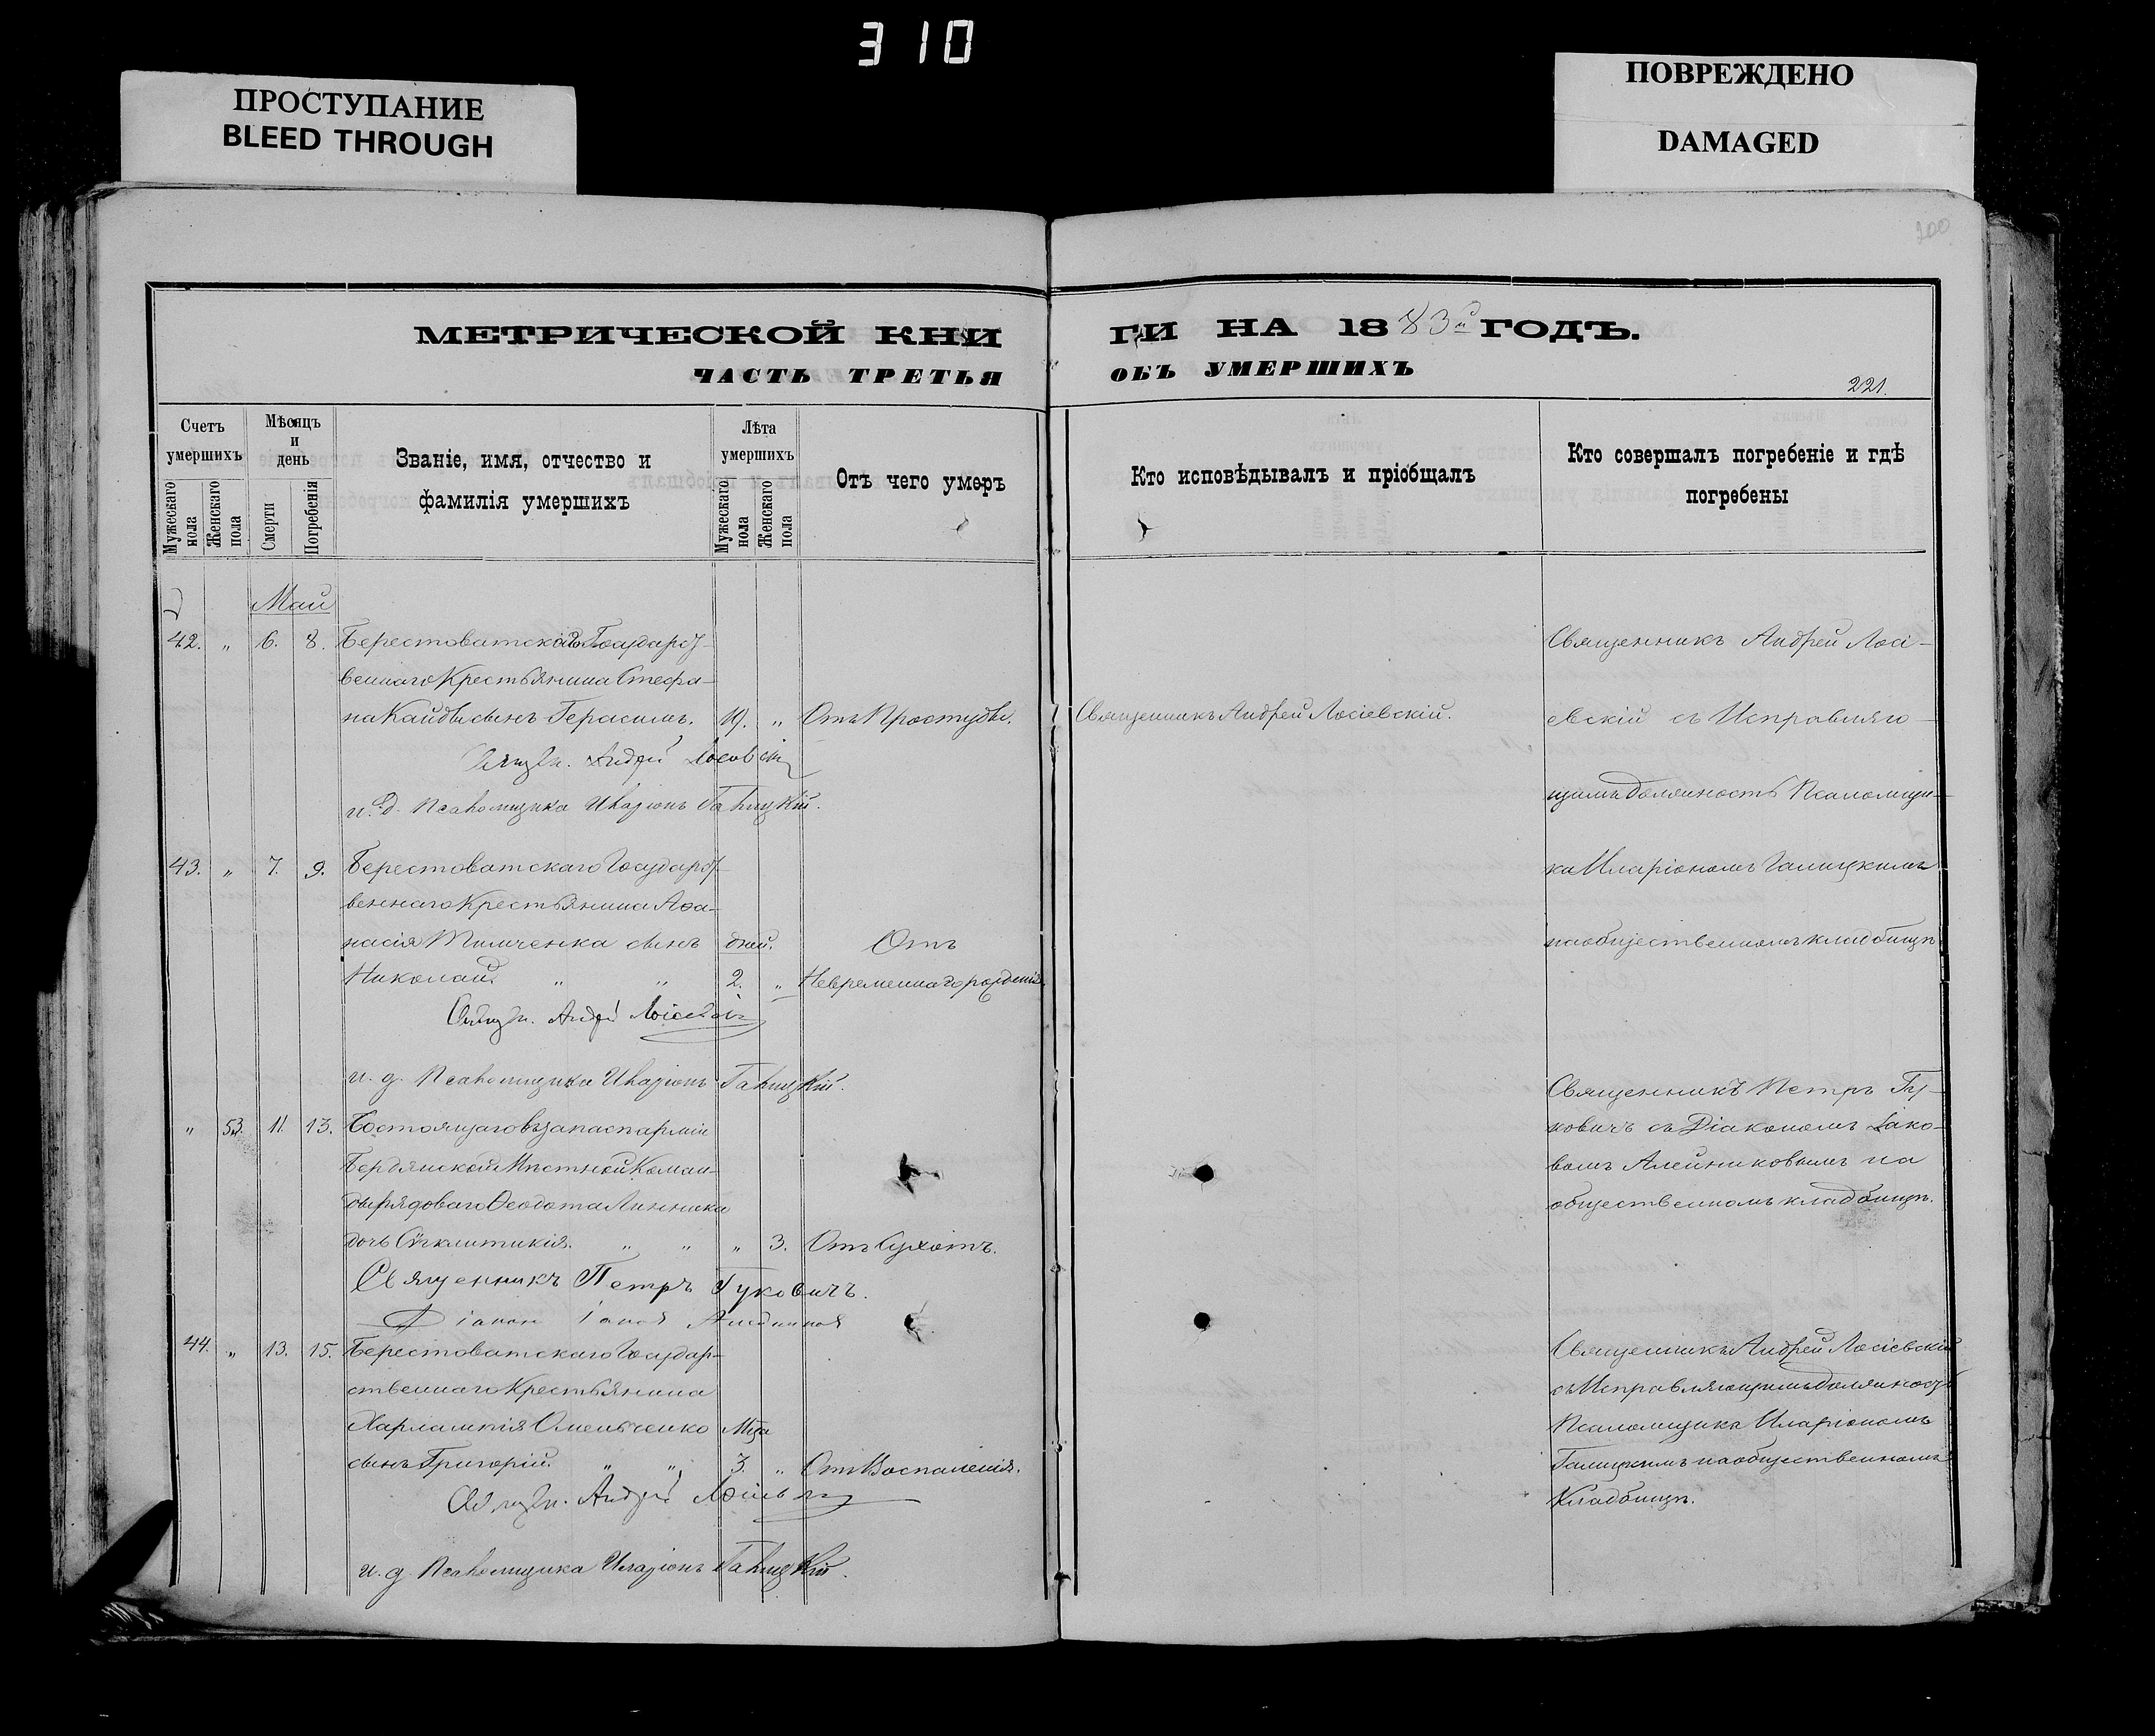 310
ПРОСТУПАНИЕ
BLEED THROUGH
ПОВРЕЖДЕНО
DAMAGED
200
МЕТРИЧЕСКОЙ КНИ
ЧАСТЬ ТРЕТЬЯ
ГИ НА 1883й ГОДЪ.
ОБЪ УМЕРШИХЪ
221.
Счетъ умершихъ
Мужескаго пола
Женскаго пола
Мѣсяцъ и день
Смерти
Погребенія
Званіе, имя, отчество и
фамилія умершихъ
Лѣта умершихъ
Мужескаго пола
Женскаго пола
Отъ чего умеръ
Кто исповѣдывалъ и пріобщалъ
Кто совершалъ погребеніе и гдѣ
погребены
Май
42. " 6. 8. Берестоватскаго Государст-
веннаго Крестьянина Стефа-
на Кайды сынъ Герасимъ. 19. " Отъ Простуды.
Священникъ Андрей Лосіевскій.
Священникъ Андрей Лосі-
евскій съ Исправляю-
щимъ должность Псаломщи-
ка Иларіономъ Галицкимъ
на общественномъ кладбищѣ
Андрей
и. д. Псаломщика Иларіонъ Галицкій.
43. " 7. 9. Берестоватскаго Государст-
веннаго Крестьянина Аѳа-
насія Тимченка сынъ дней. Отъ
Николай. " " 2. " Невременнаго рожденія.
Андрей Лосіевскій
и. д. Псаломщика Иларіонъ Галицкій.
" 53. 11. 13. Состоящаго въ запасѣ арміи
Бердянской Мѣстной Коман-
ды рядоваго Ѳеодота Линника
дочь Сѵгклитикія. " " " 3. Отъ Сухотъ.
Священникъ Петръ Гу-
ковичъ съ Діакономъ Іако-
вомъ Алейниковымъ на
общественномъ кладбищѣ.
Священникъ Петръ Гуковичъ.
Діаконъ Іаковъ
44. " 13. 15. Берестоватскаго Государ-
ственнаго Крестьянина
Харлампія Омельченко Мца
сынъ Григорій. " " 3. " Отъ Воспаленія.
Священникъ Андрей Лосіевскій
съ Исправляющимъ должность
Псаломщика Иларіономъ
Галицкимъ на общественномъ
Кладбищѣ.
Андрей
и. д. Псаломщика Иларіонъ Галицкій.